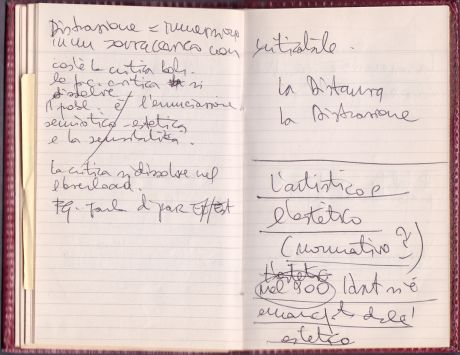 Distrazione = immersione
in un sovraccarico con
cos'è la critica
la critica si
dissolve
Il probl. è l'enunciazione
semiotico-estetica
e la sensibilità.
la critica si dissolve nel
overload.
FG. parla di par Et/Est
intitolabile.
la Distanza
la Distrazione
L'artistico e
l'estetico
(normativo?)
nel '900 l'art si è
emancipato dall'
estetico